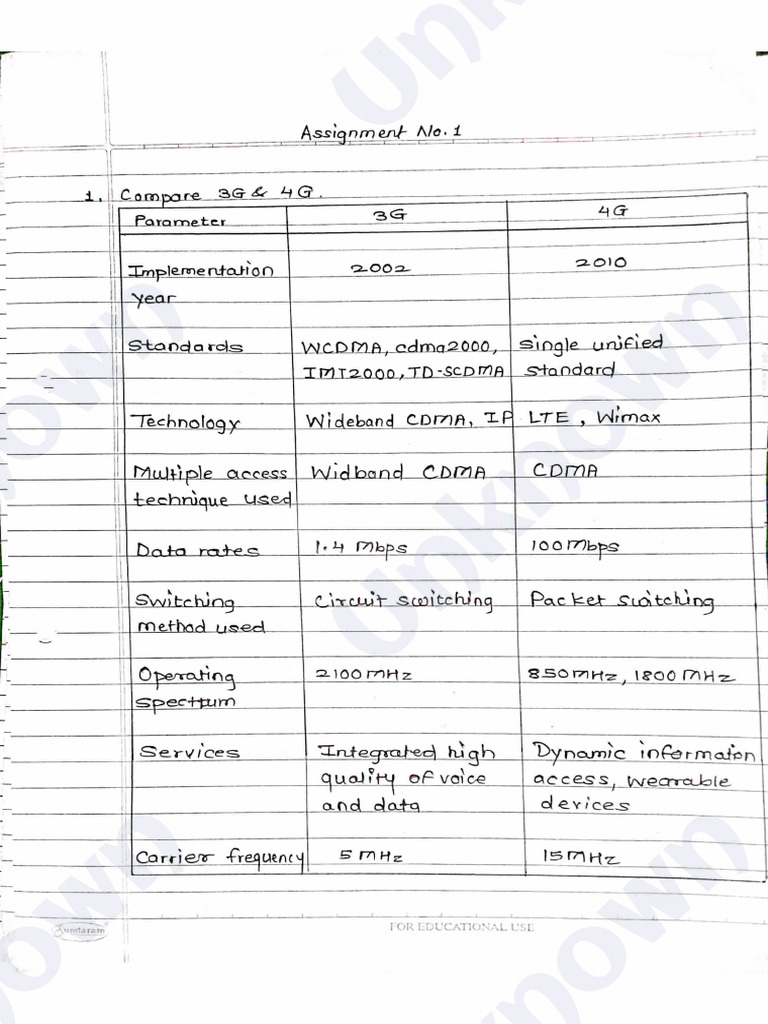 Assignment No. 1
1. Compare 3G & 4G.
Parameter 3G 4G
Implementation 2002 2010
year
Standards WCDMA, cdma2000, single unified
IMT2000, TD-SCDMA standard
Technology Wideband CDMA, IP LTE, Wimax
Multiple access Widband CDMA CDMA
technique used
Data rates 1.4 Mbps 100Mbps
Switching Circuit switching Packet switching
method used
Operating 2100 MHz 850MHz, 1800 MHz
specttum
Services Integrated high Dynamic informaton
quality of voice access, wearable
and data devices
Carrier frequency 5 MHz 15MHz
Sundaram FOR EDUCATIONAL USE
Unknown
Unknown
Unknown
Unknown
Unknown